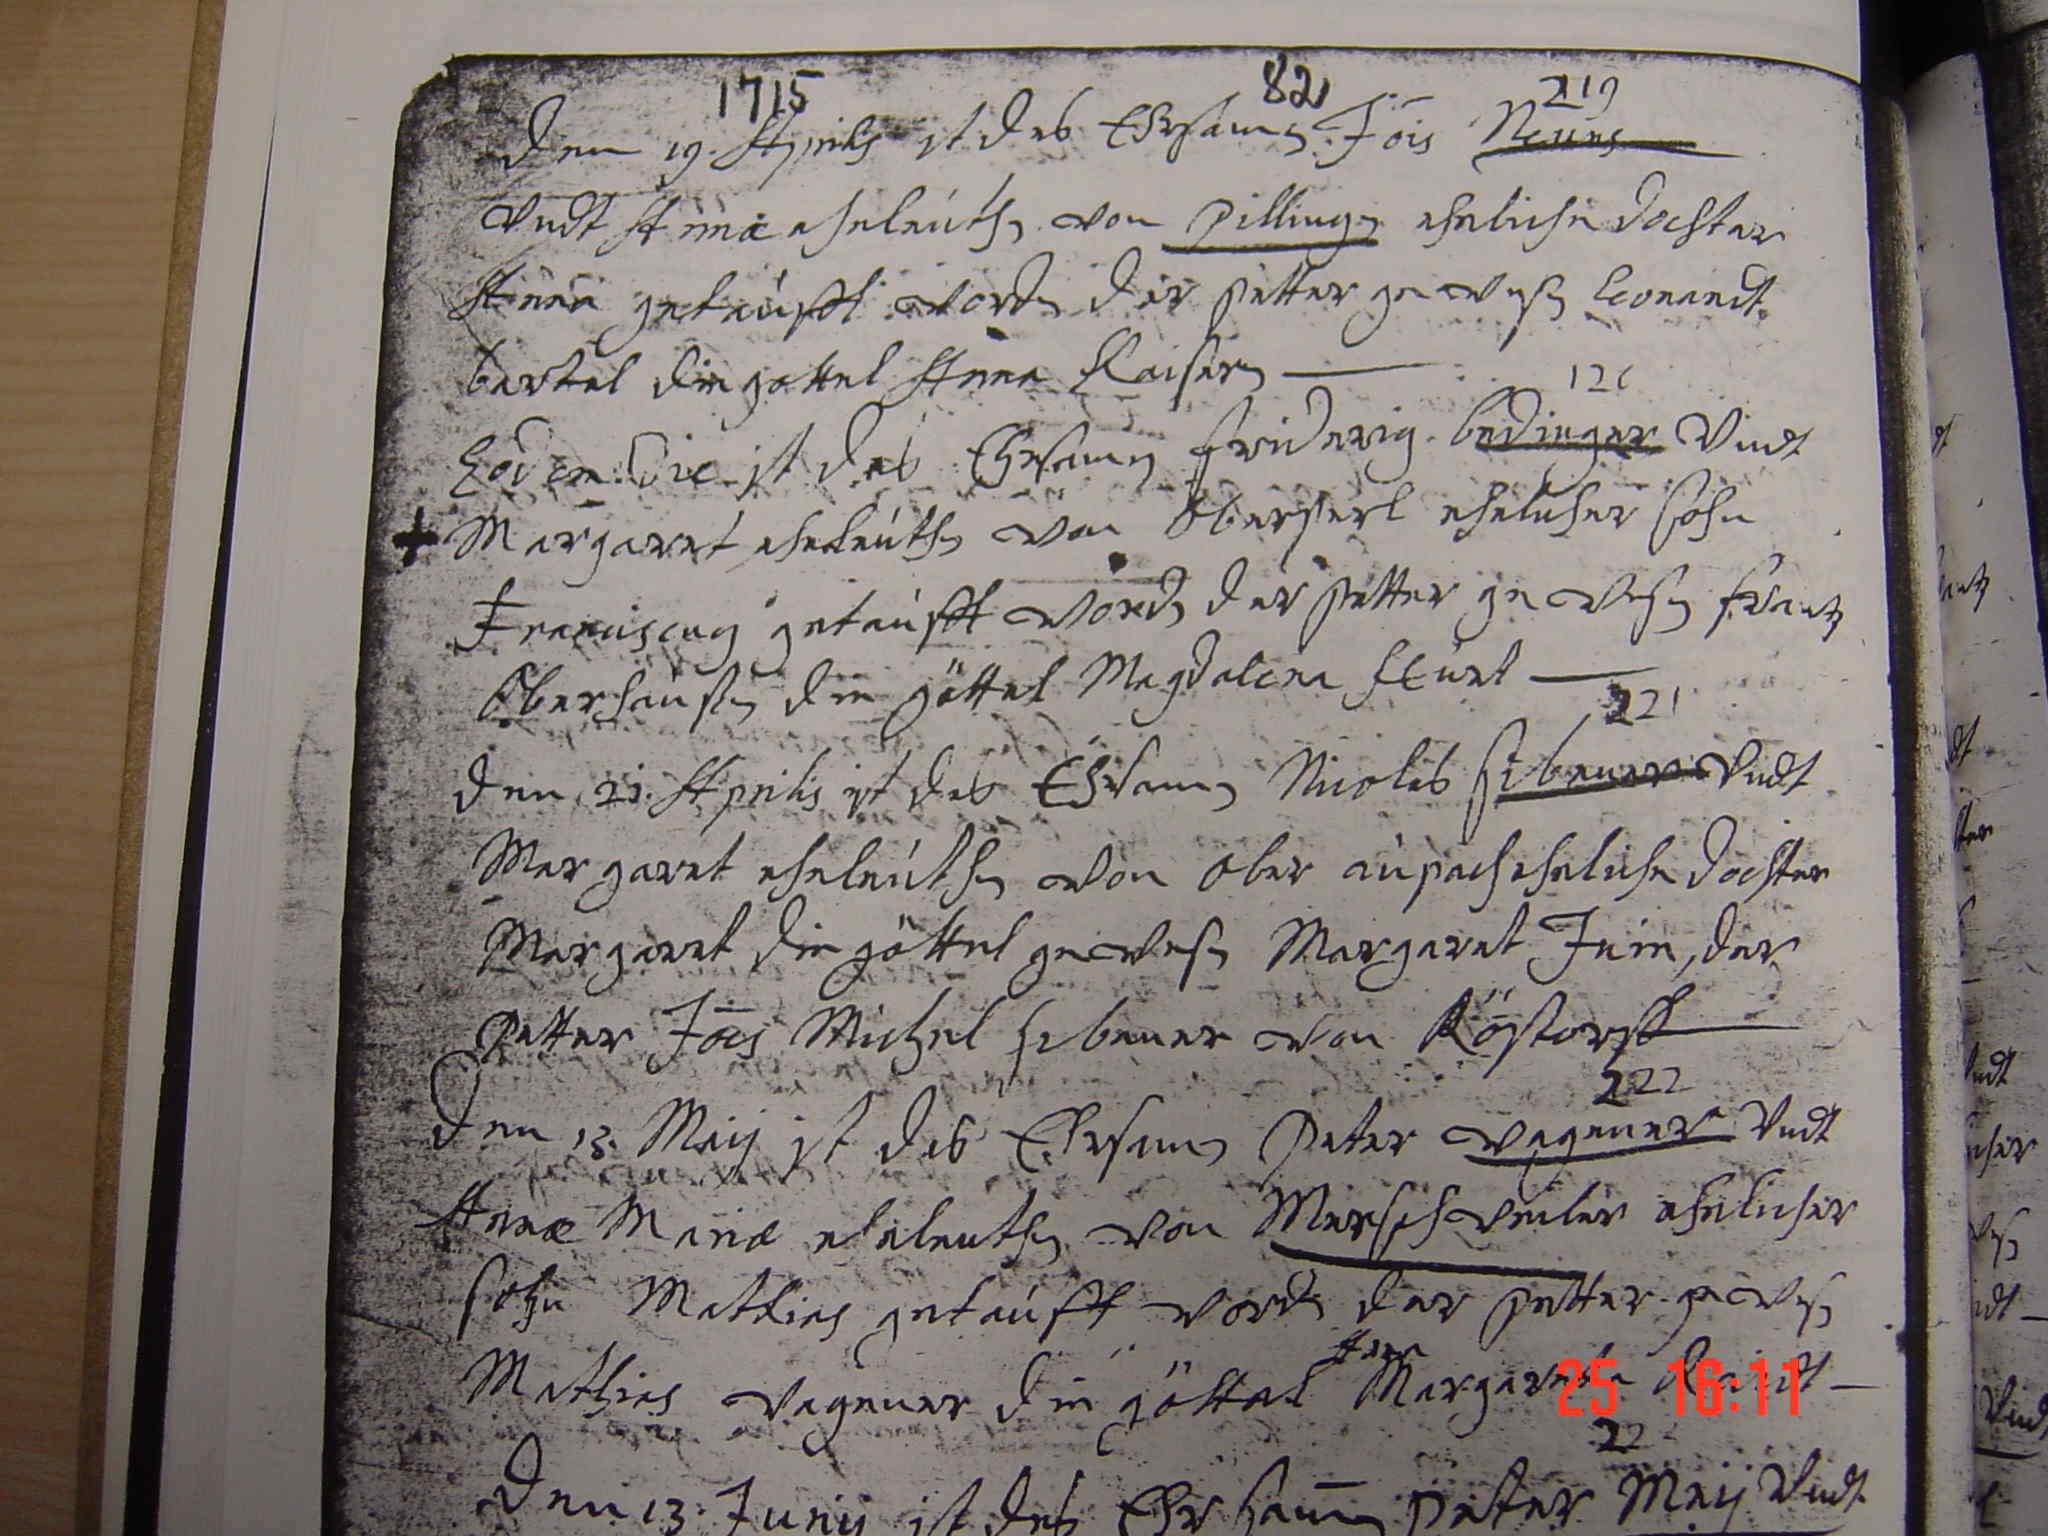 1715 82 219
den 19. Aprilis ist des Ehrsamen Jois Neües
Vndt Annæ eheleüthen von pillingen eheliche dochter
Anna getaüfft worden der petter gewesen Leonardt
bertel die gottel Anna Kaisers
Eodem die ist des Ehrsamen friderig bedinger Vndt
Margaret eheleüthen von Oberperl ehelicher sohn
Franciscus getaüfft worden der petter gewesen frantz
Oberhausen die göttel Magdalena
221
den 21. Aprilis ist des Ehrsamen Nicolas sibener Vndt
Margaret eheleüthen von ober aüpach eheliche dochter
Margaret die göttel gewesen Margaret der
petter Jois Michel sibener von
222
den 13. Maij ist des Ehrsamen peter wagener Vndt
Annæ Mariæ eheleuthen von Merschweiler ehelicher
sohn Mathias getaüfft worden der petter gewesen
Mathias wagener die göttel Anna Margareta
25 16:11
22
den 13. Junij ist des Ehrsamen peter Meij Vndt